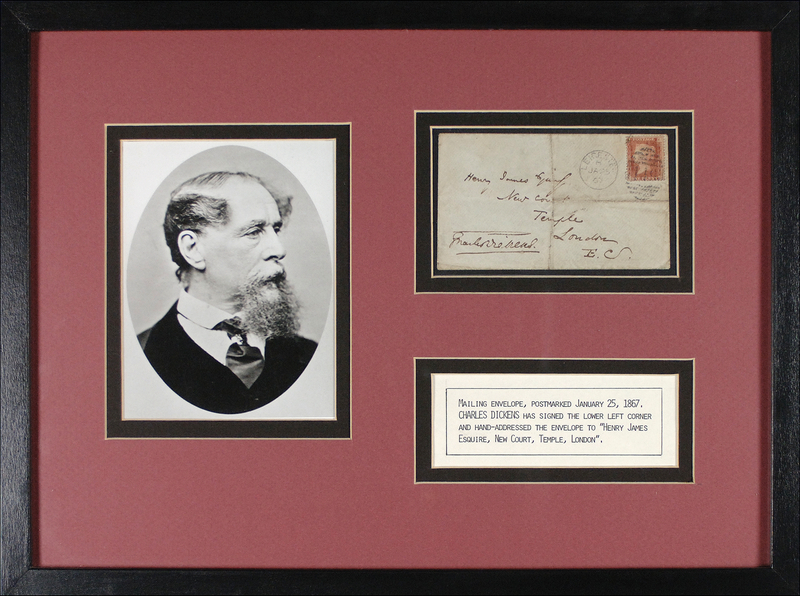 Henry James Esq
New Court
Temple
London
E.C.
Charles Dickens
MAILING ENVELOPE, POSTMARKED JANUARY 25, 1867.
CHARLES DICKENS HAS SIGNED THE LOWER LEFT CORNER
AND HAND-ADDRESSED THE ENVELOPE TO "HENRY JAMES
ESQUIRE, NEW COURT, TEMPLE, LONDON".